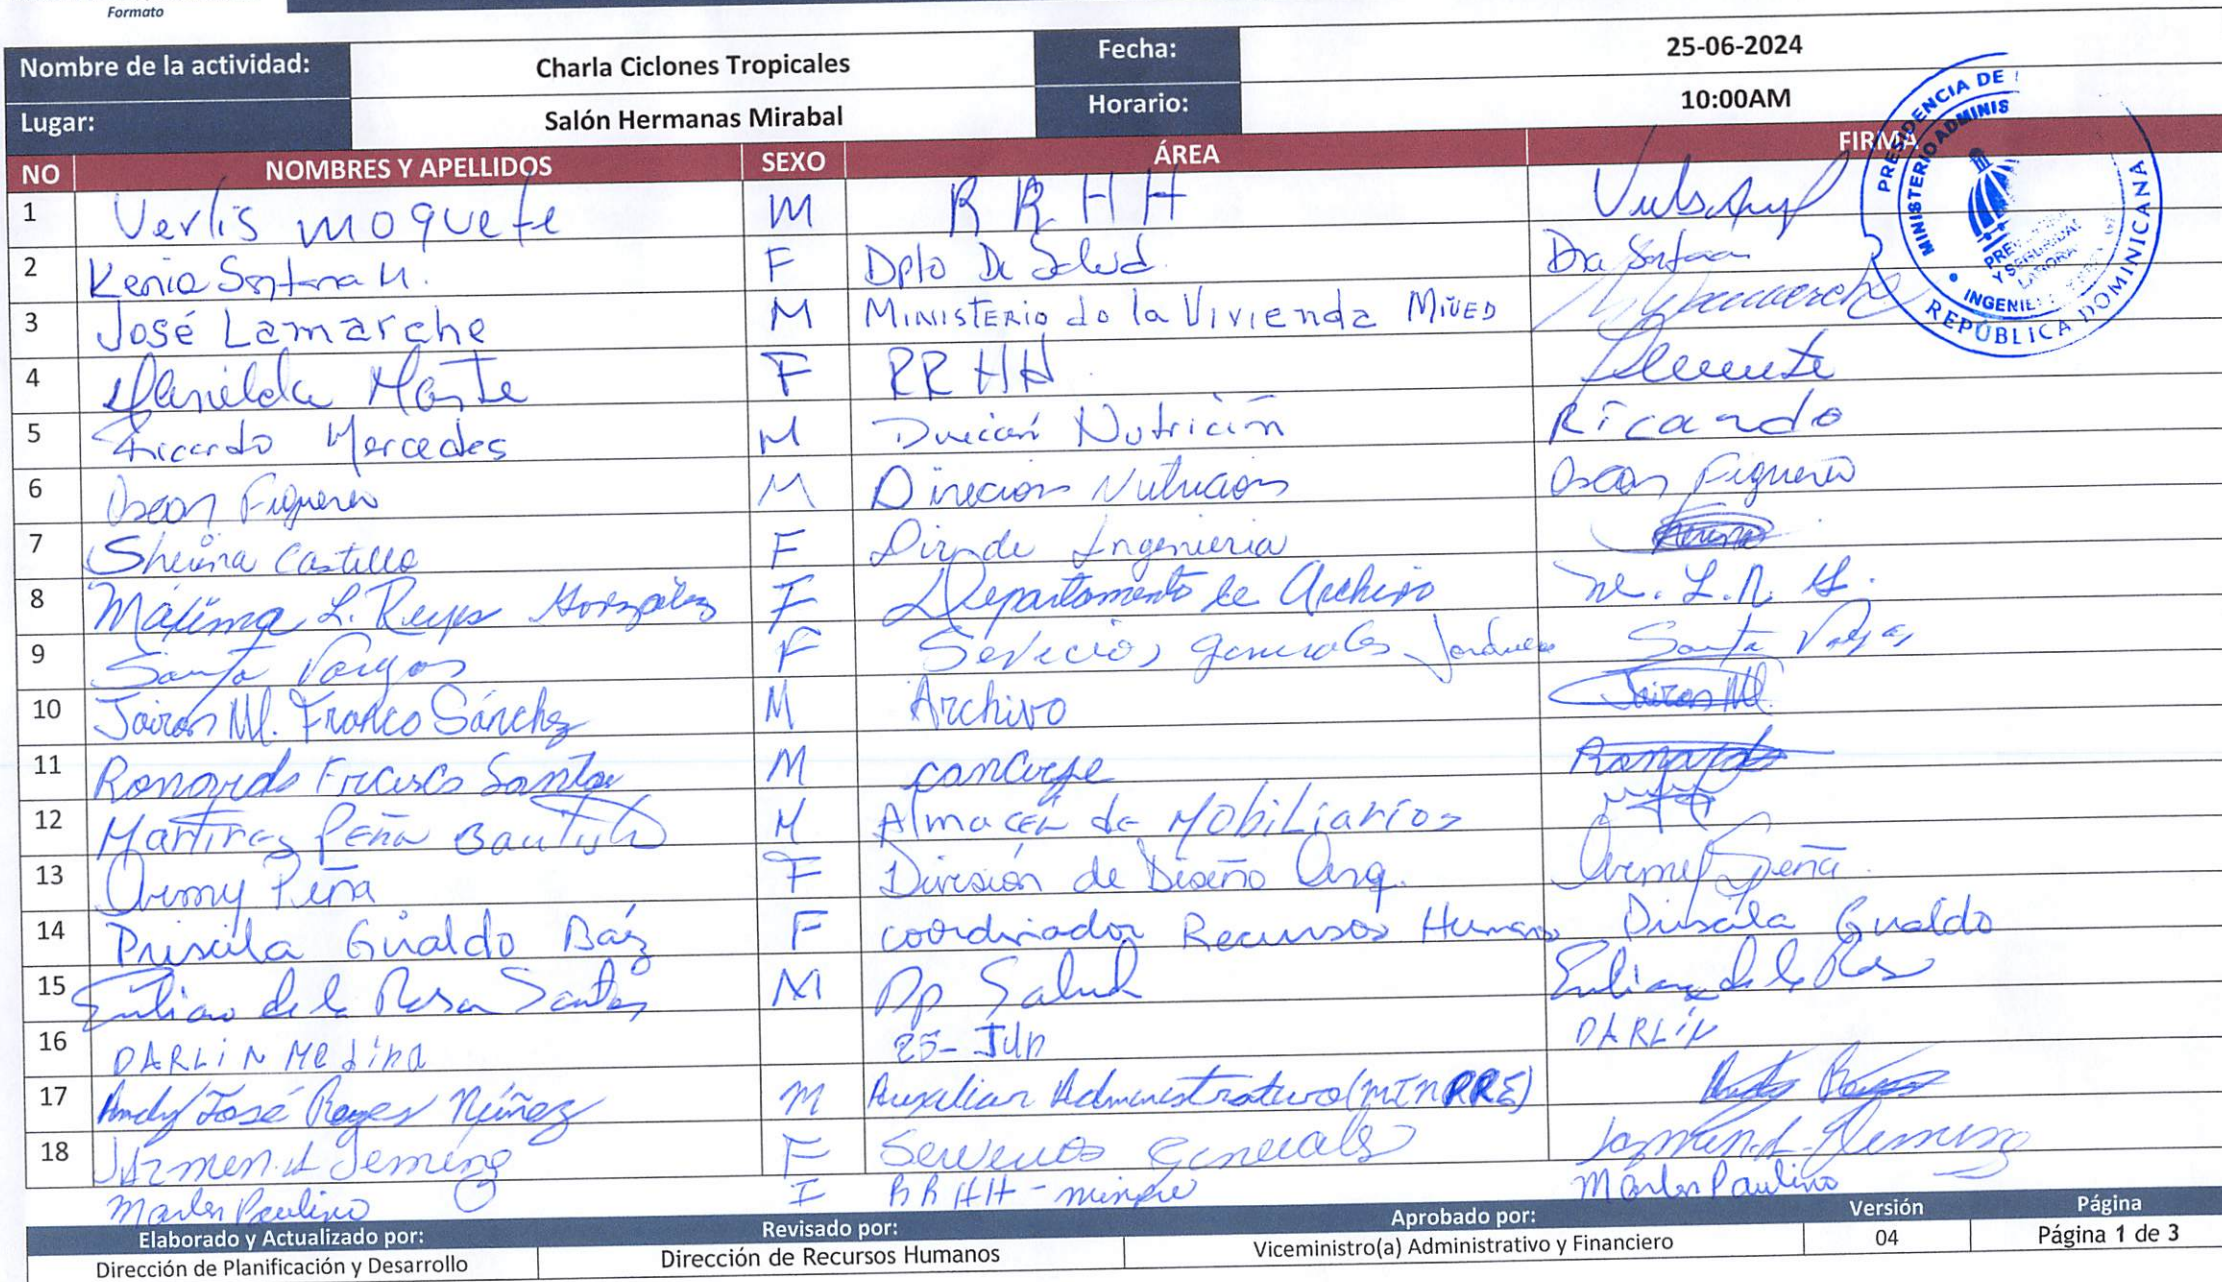 Formato
Nombre de la actividad: Charla Ciclones Tropicales Fecha: 25-06-2024
Lugar: Salón Hermanas Mirabal Horario: 10:00AM
NO NOMBRES Y APELLIDOS SEXO ÁREA FIRMA
1 Verlis moquete M RRHH
2 Kenia Santana M. F Dpto De Salud Dra Santana
3 José Lamarche M MINISTERIO de la Vivienda MIVED
4 Monte F RRHH
5 Ricardo Mercedes M Nutrición Ricardo
6 Oscar Figuereo M Direcion Nutricion Oscar Figuereo
7 Castillo F Dir. de Ingenieria
8 Máxima L. Reyes González F Departamento de Archivo M. L. R. G.
9 Santa Vargas F Servecios generales Santa Vargas
10 Jairon Ml. Franco Sánchez M Archivo Jairon Ml.
11 Santos M
12 Martirez Peña Bautista M Almacen de Mobiliarios
13 Peña F División de Diseño Arq. Peña
14 Priscila Gualdo Báez F coordinador Recursos Humano Priscila Gualdo
15 de la Rosa Santos M Dp Salud de la Rosa
16 DARLIN Medina 25-Jun DARLIN
17 Andy José Reyes Núñez M Auxiliar Administrativo (MINPRE)
18 F Generales
Paulino RRHH - minpre Paulino
PRESIDENCIA DE
MINISTERIO ADMINIS
REPÚBLICA DOMINICANA
Elaborado y Actualizado por: Revisado por: Aprobado por: Versión Página
Dirección de Planificación y Desarrollo Dirección de Recursos Humanos Viceministro(a) Administrativo y Financiero 04 Página 1 de 3